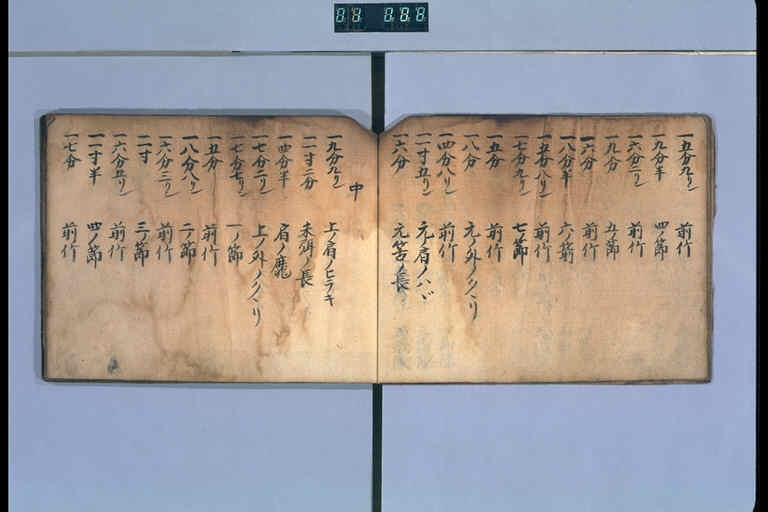 一五分九リン 前竹
一九分半 四ノ節
一六分二リン 前竹
一九分 五ノ節
一六分 前竹
一八分半 六ノ節
一五分八リン 前竹
一七分九リン 七ノ節
一五分 前竹
一八分 元ノ外ノクヽリ
一四分八リン 前竹
一一寸五リン 元ノ肩ノハヾ
一六分 元筈ノ長
中
一九分九リン 上ノ肩ノヒラキ
一一寸二分 末弭ノ長
一四分半 肩ノ
一七分二リン 上ノ外ノクヽリ
一七分七リン 一ノ節
一五分 前竹
一八分八リン 二ノ節
一六分三リン 前竹
一一寸 三ノ節
一六分五リン 前竹
一一寸半 四ノ節
一七分 前竹